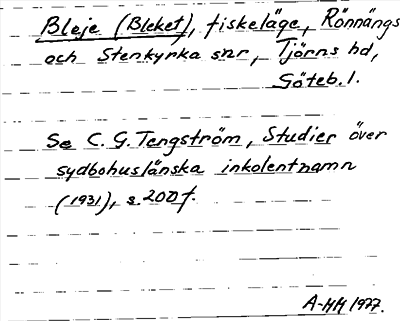 Bleje (Bleket), fiskeläge, Rönnängs
och Stenkyrka snr, Tjörns hd,
Göteb. l.
Se C. G. Tengström, Studier över
sydbohuslänska inkolentnamn
(1931), s. 200 f.
A-HH 1977.